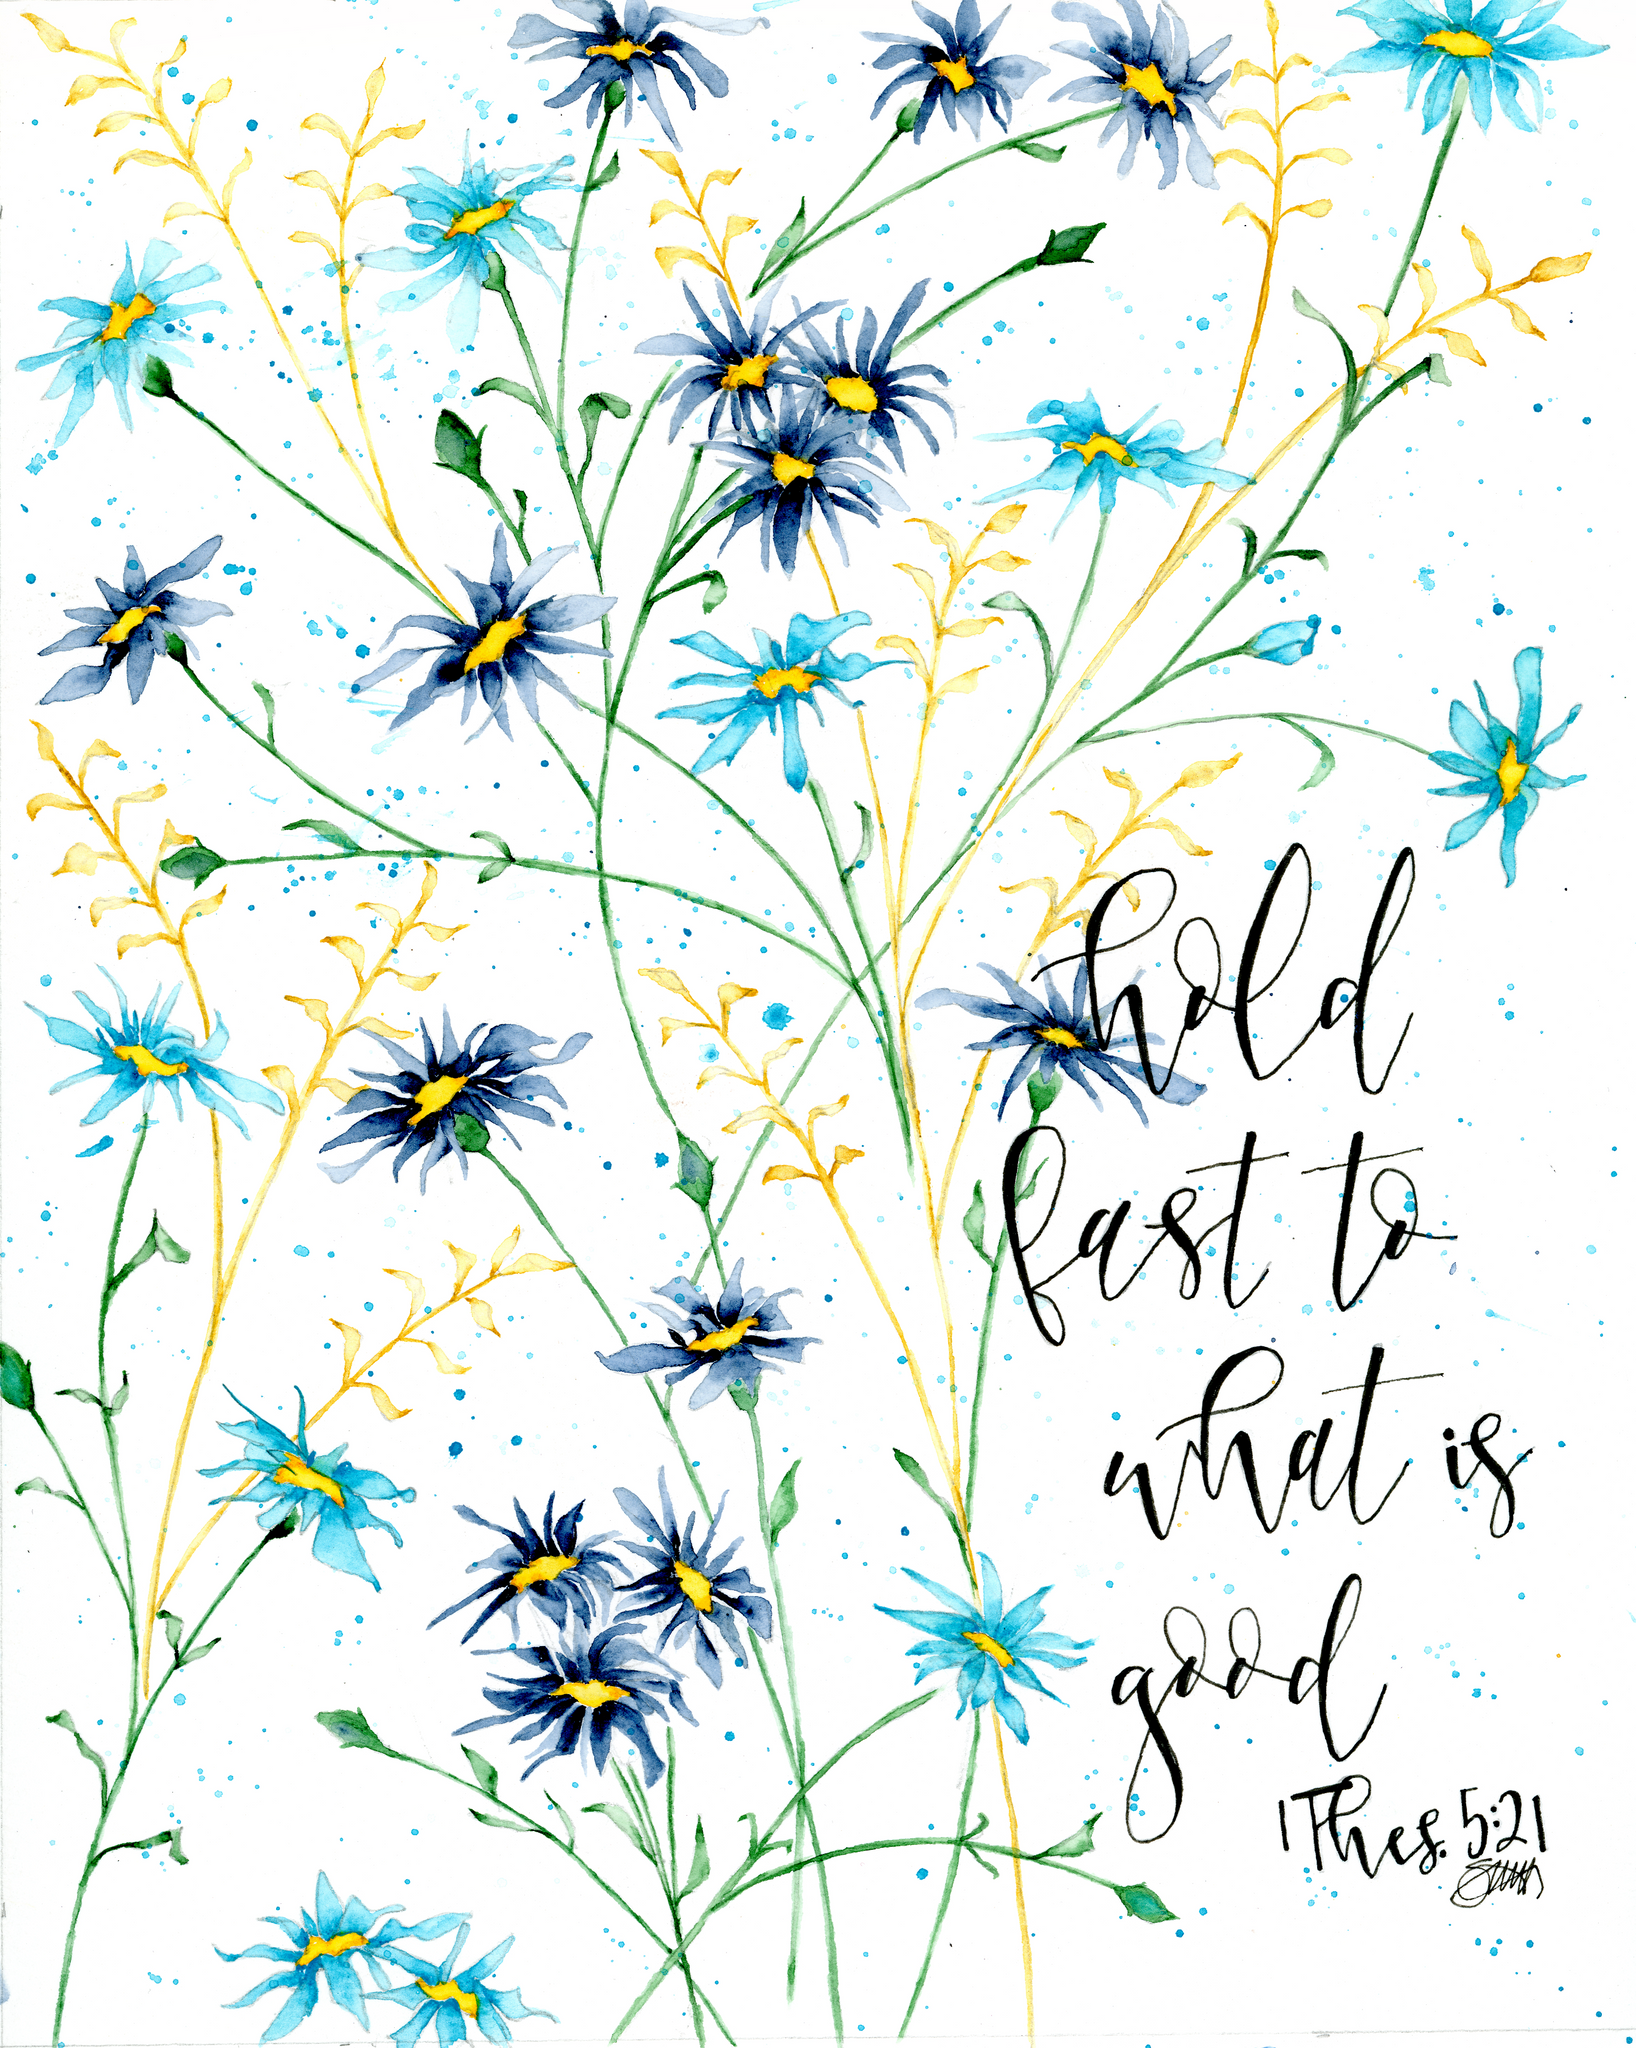 hold
fast to
what is
good
1 Thes. 5:21